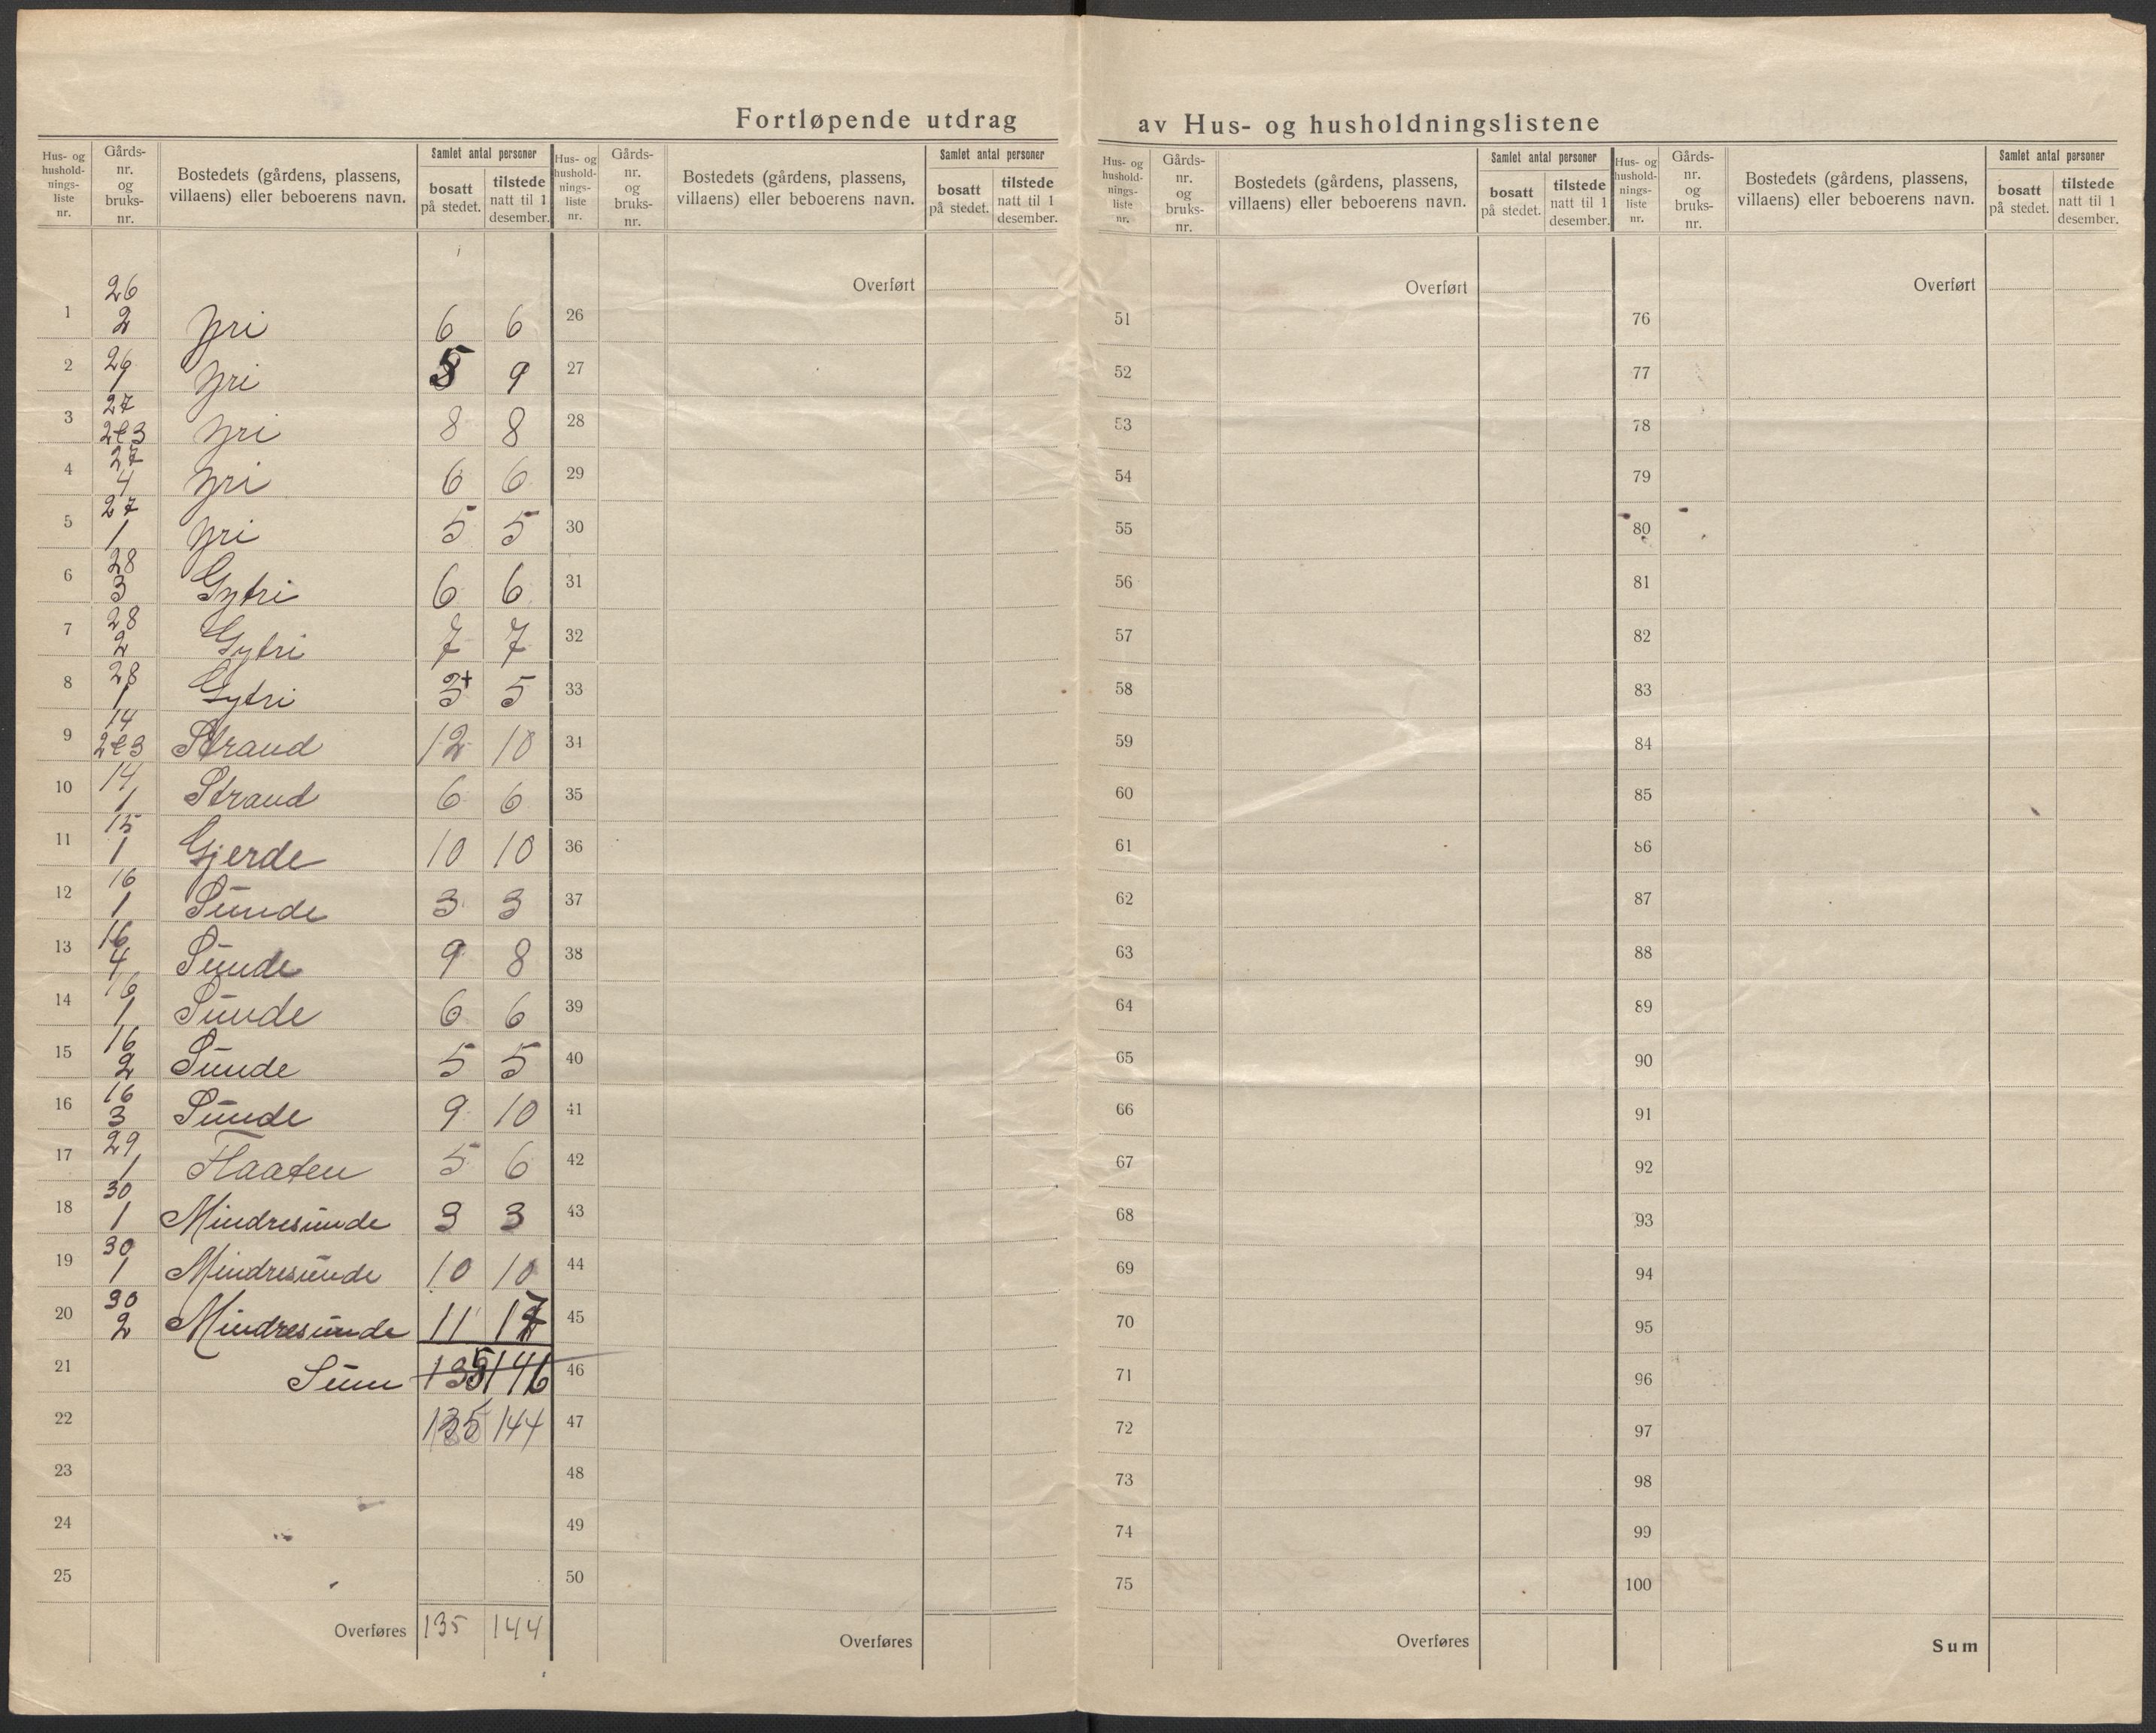 Fortløpende utdrag av Hus- og husholdningslistene
Hus- og hushold- nings- liste nr. | Gårds- nr. og bruks- nr. | Bostedets (gårdens, plassens, villaens) eller beboerens navn. | Samlet antal personer | bosatt på stedet. | tilstede natt til 1 desember.
1 | 26 2 | Yri | 6 | 6
2 | 26 1 | Yri | 5 | 9
3 | 27 2 & 3 | Yri | 8 | 8
4 | 27 4 | Yri | 6 | 6
5 | 27 1 | Yri | 5 | 5
6 | 28 3 | Gytri | 6 | 6
7 | 28 2 | Gytri | 7 | 7
8 | 28 1 | Gytri | 3+ | 5
9 | 14 2 & 3 | Strand | 12 | 10
10 | 14 1 | Strand | 6 | 6
11 | 15 1 | Gjerde | 10 | 10
12 | 16 1 | Sunde | 3 | 3
13 | 16 4 | Sunde | 9 | 8
14 | 16 1 | Sunde | 6 | 6
15 | 16 2 | Sunde | 5 | 5
16 | 16 3 | Sunde | 9 | 10
17 | 29 1 | Flaaten | 5 | 6
18 | 30 1 | Mindresunde | 3 | 3
19 | 30 1 | Mindresunde | 10 | 10
20 | 30 2 | Mindresunde | 11
21 | Sum | 146
22 | 135 | 144
23
24
25
Overføres | 135 | 144
Hus- og hushold- nings- liste nr. | Gårds- nr. og bruks- nr. | Bostedets (gårdens, plassens, villaens) eller beboerens navn. | Samlet antal personer | bosatt på stedet. | tilstede natt til 1 desember.
Overført
26
27
28
29
30
31
32
33
34
35
36
37
38
39
40
41
42
43
44
45
46
47
48
49
50
Overføres
Hus- og hushold- nings- liste nr. | Gårds- nr. og bruks- nr. | Bostedets (gårdens, plassens, villaens) eller beboerens navn. | Samlet antal personer | bosatt på stedet. | tilstede natt til 1 desember.
Overført
51
52
53
54
55
56
57
58
59
60
61
62
63
64
65
66
67
68
69
70
71
72
73
74
75
Overføres
Hus- og hushold- nings- liste nr. | Gårds- nr. og bruks- nr. | Bostedets (gårdens, plassens, villaens) eller beboerens navn. | Samlet antal personer | bosatt på stedet. | tilstede natt til 1 desember.
Overført
76
77
78
79
80
81
82
83
84
85
86
87
88
89
90
91
92
93
94
95
96
97
98
99
100
Sum